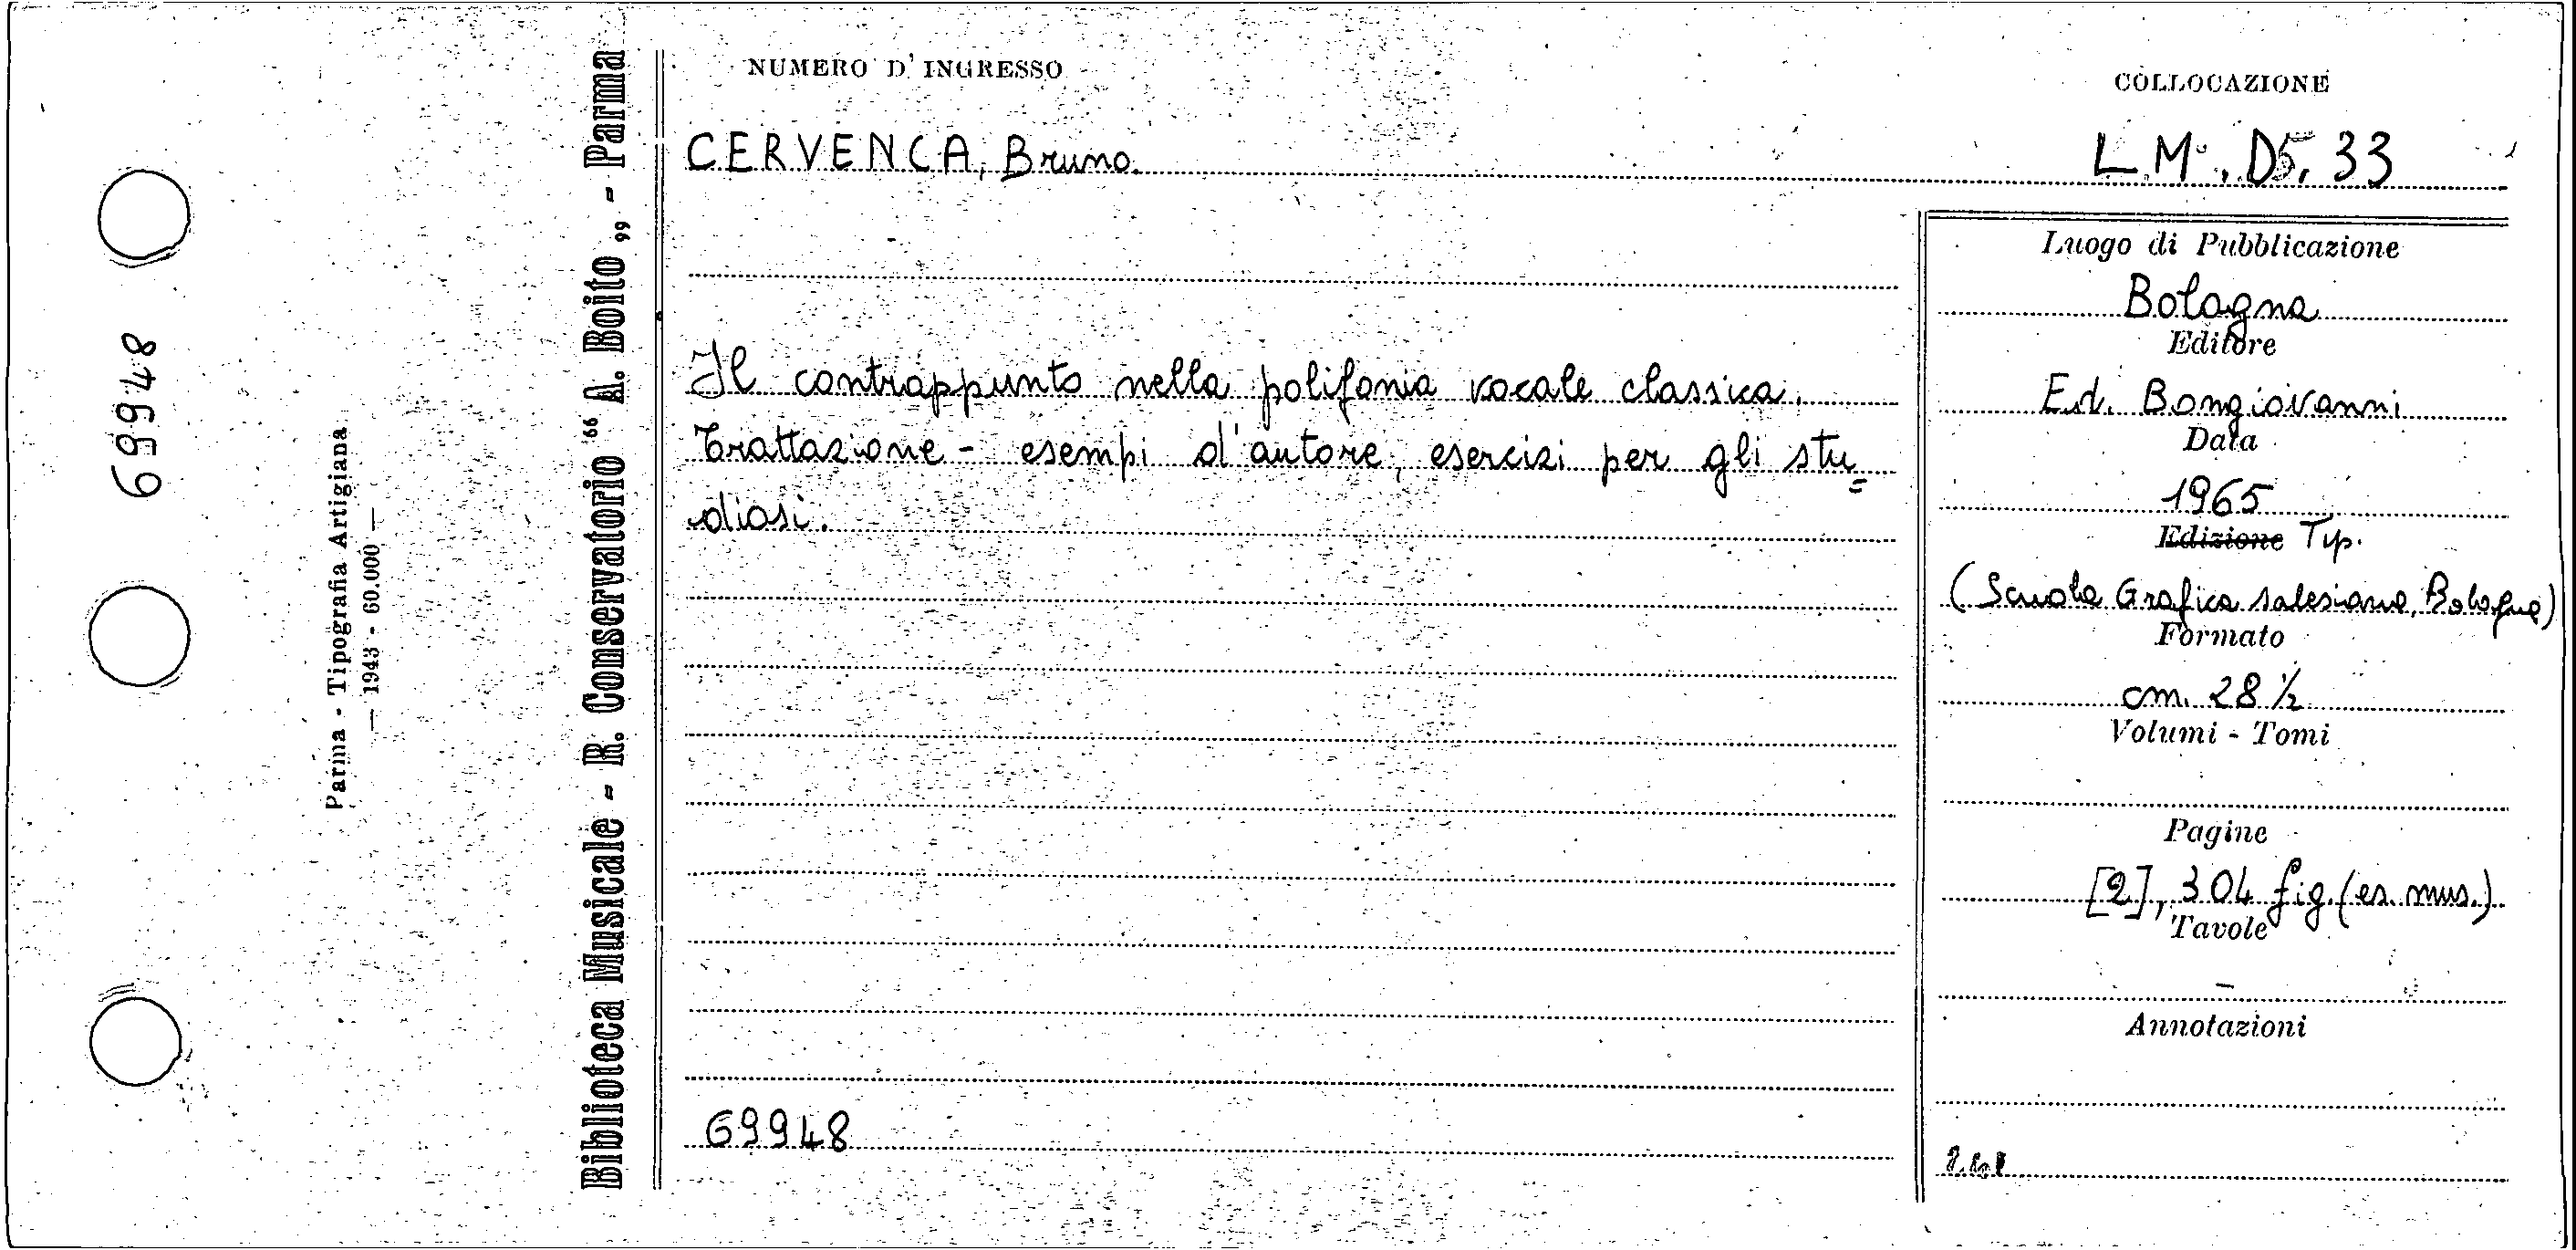 69948
Parma - Tipografia Artigiana
— 1943 - 60.000 —
Biblioteca Musicale - R. Conservatorio "A. Boito" - Parma
NUMERO D'INGRESSO
COLLOCAZIONE
CERVENCA, Bruno.
L.M., D5, 33
Il contrappunto nella polifonia vocale classica.
Trattazione - esempi d'autore, esercizi per gli stu=
diosi.
69948
Luogo di Pubblicazione
Bologna
Editore
Ed. Bongiovanni
Data
1965
Edizione Tip.
(Scuola Grafica salesiana, Bologna)
Formato
cm. 28 ½
Volumi - Tomi
Pagine
[2], 304 fig. (es. mus.)
Tavole
—
Annotazioni